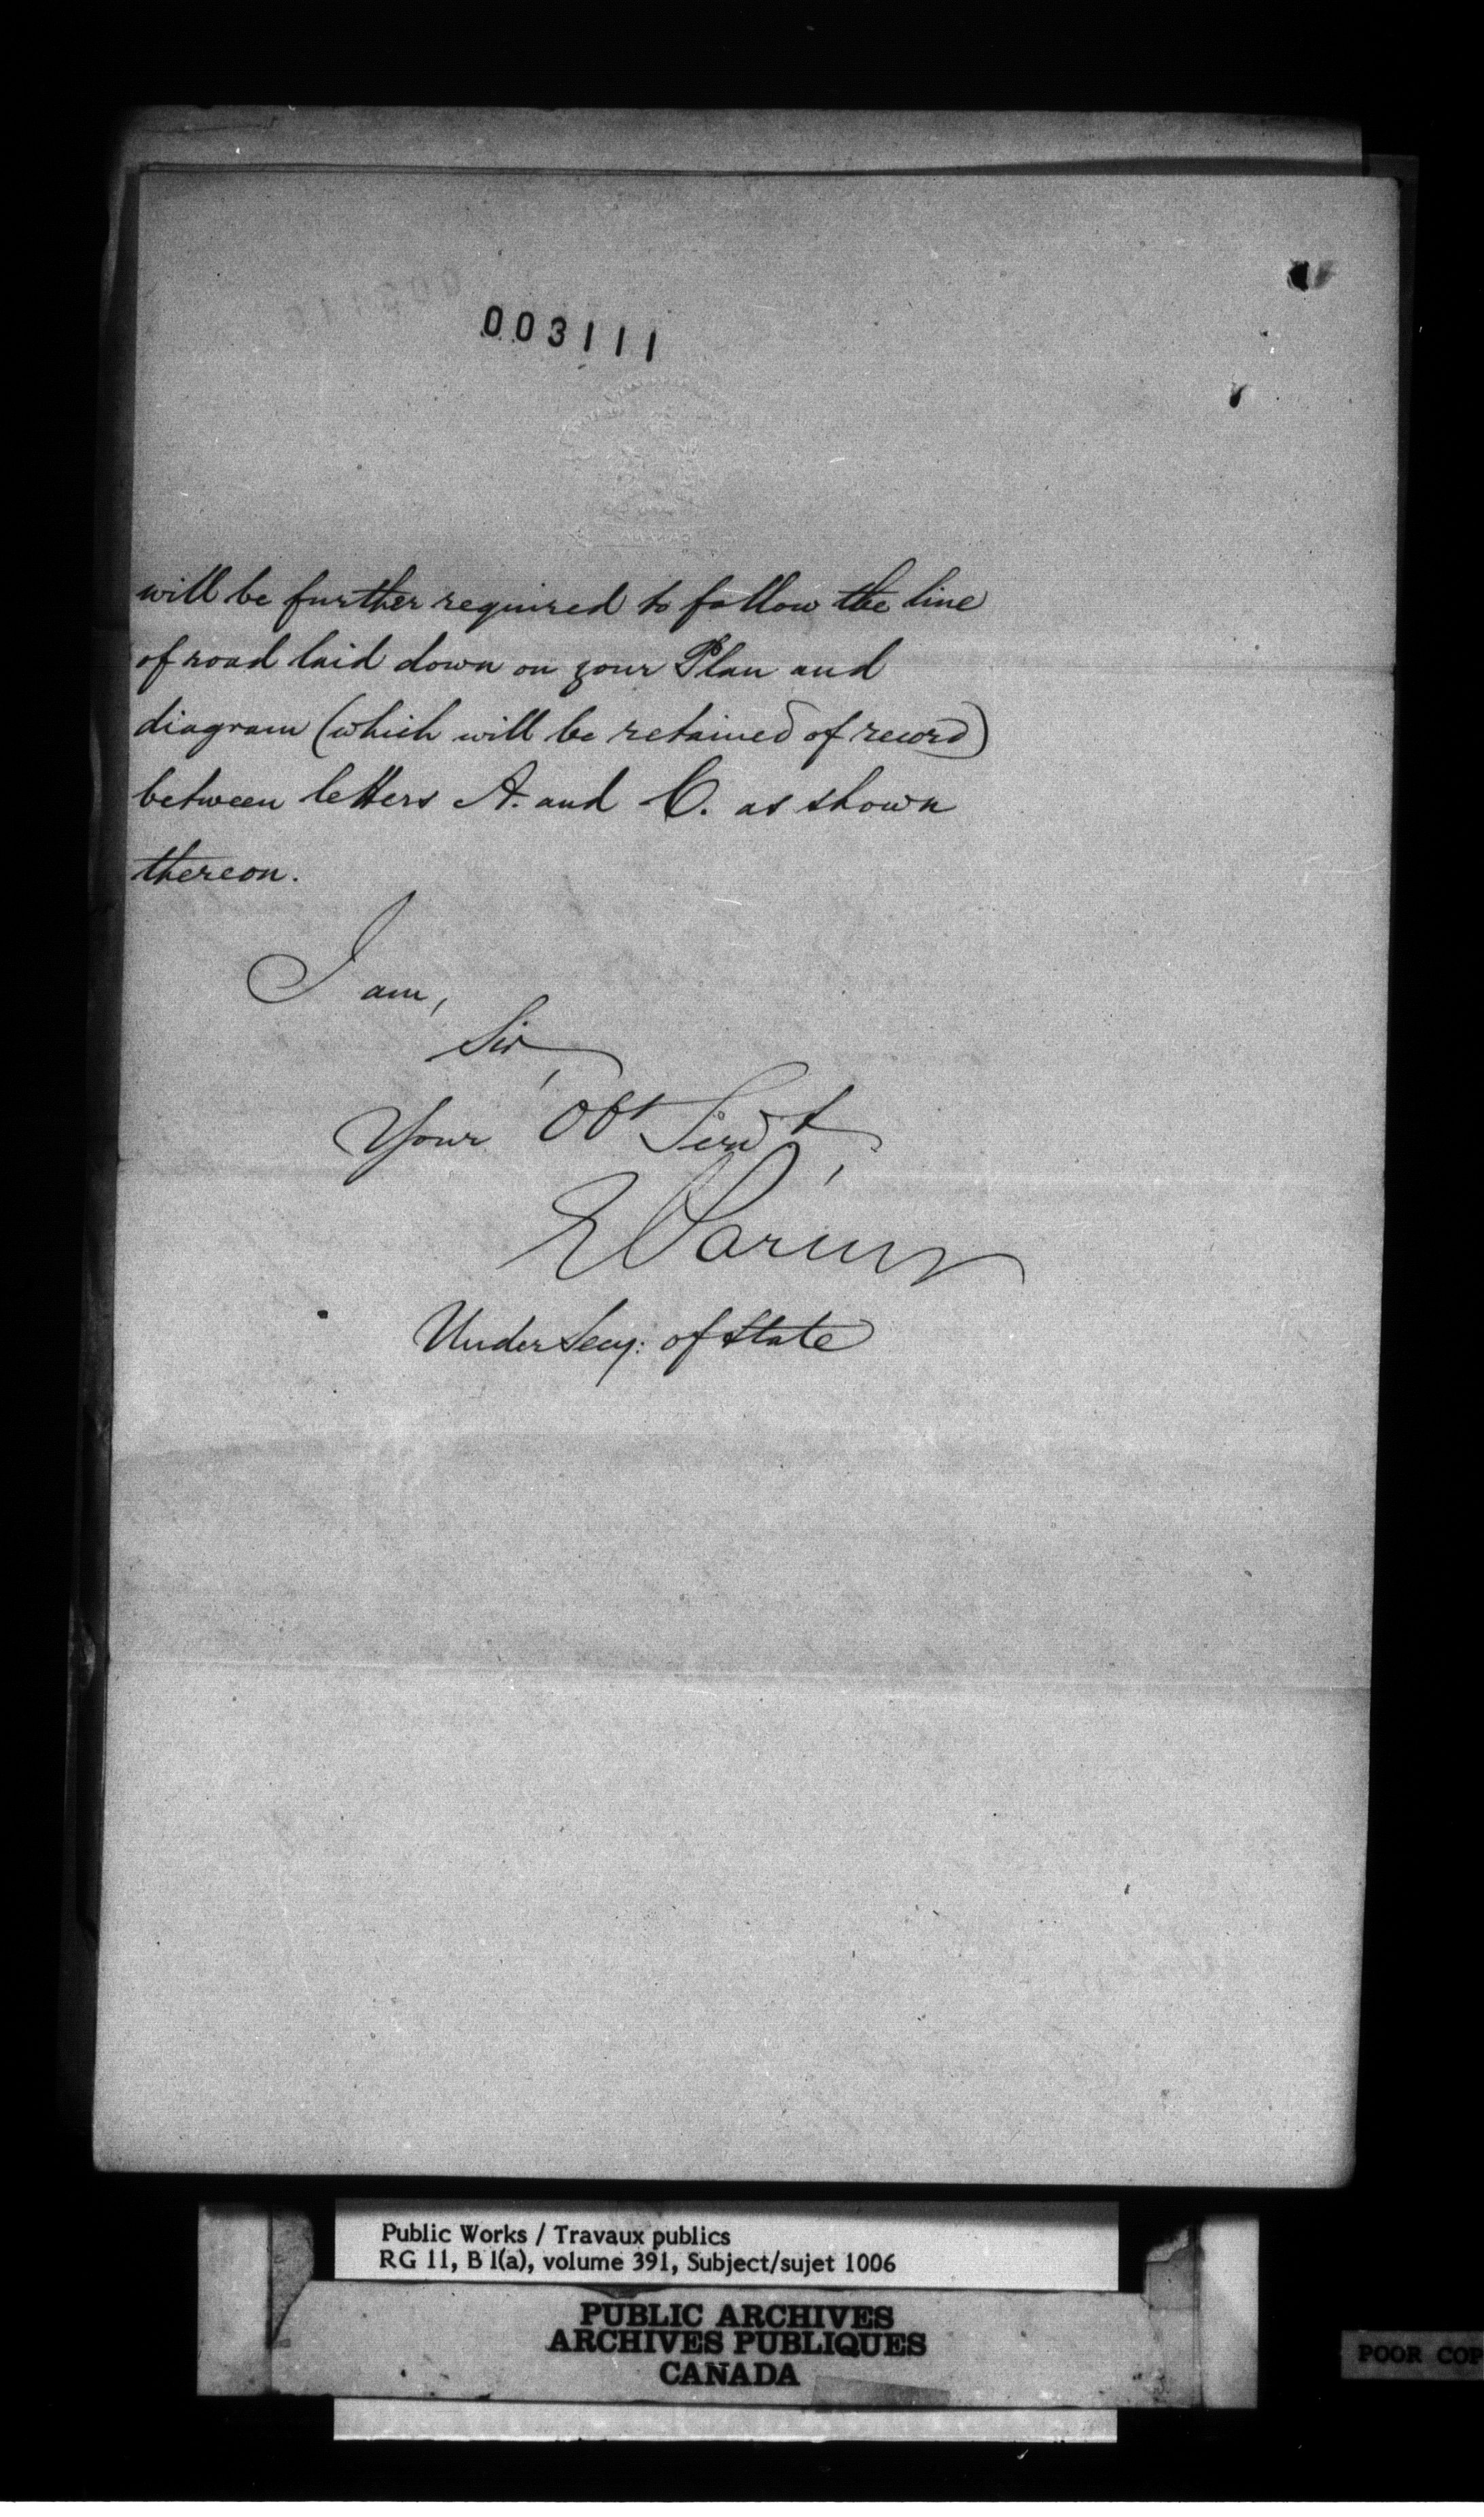 003111
will be further required to follow the line
of road laid down on your Plan and
diagram (which will be retained of record)
between letters A. and C. as shown
thereon.
I am,
Sir,
Your Obt Servt,
E Parent
Under Secy: of State
Public Works / Travaux publics
RG 11, B 1(a), volume 391, Subject/sujet 1006
PUBLIC ARCHIVES
ARCHIVES PUBLIQUES
CANADA
POOR COP